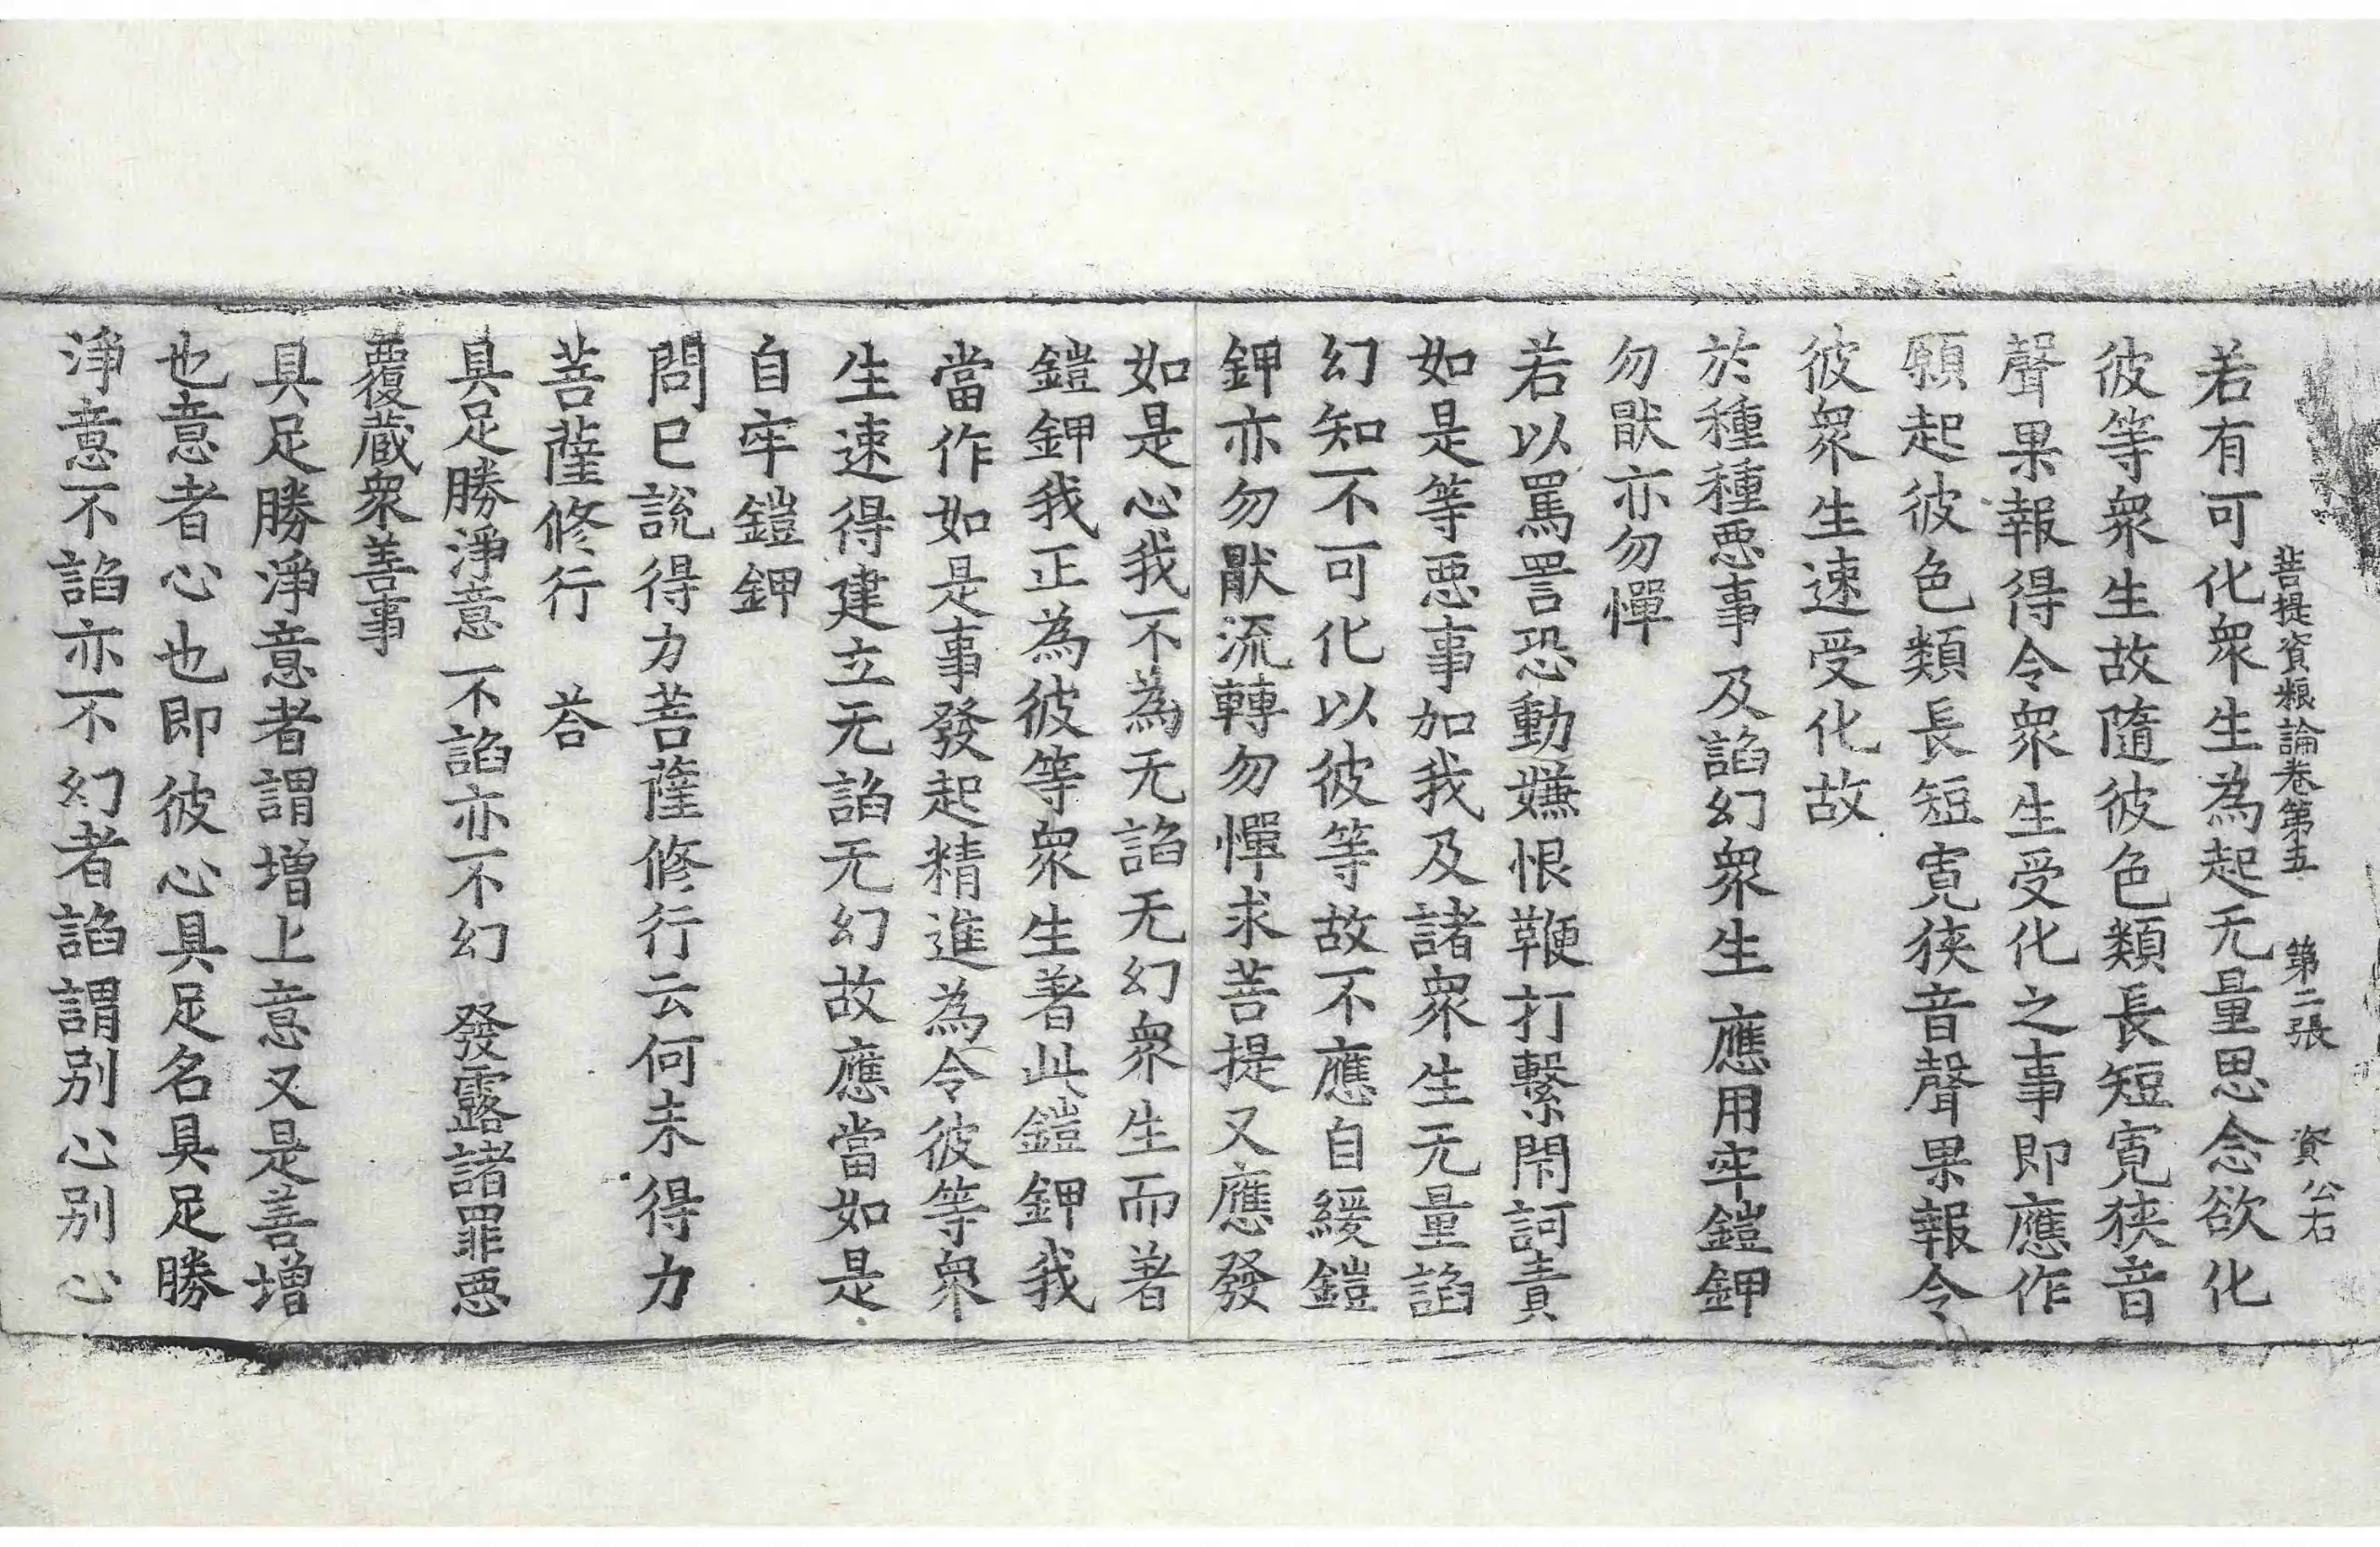 菩提資粮論卷第五 第二張 資 公右
若有可化衆生為起无量思念欲化
彼等衆生故隨彼色類長短寛狹音
聲果報得令衆生受化之事即應作
願起彼色類長短寛狹音聲果報令
彼衆生速受化故
於種種惡事及諂幻衆生 應用牢鎧鉀
勿猒亦勿憚
若以罵詈恐動嫌恨鞭打繫閇訶責
如是等惡事加我及諸衆生无量諂
幻知不可化以彼等故不應自緩鎧
鉀亦勿猒流轉勿憚求菩提又應發
如是心我不為无諂无幻衆生而著
鎧鉀我正為彼等衆生著此鎧鉀我
當作如是事發起精進為令彼等衆
生速得建立无諂无幻故應當如是
自牢鎧鉀
問已說得力菩薩修行云何未得力
菩薩修行 荅
具足勝淨意 不諂亦不幻 發露諸罪惡
覆蔵衆善事
具足勝淨意者謂增上意又是善增
也意者心也即彼心具足名具足勝
淨意不諂亦不幻者諂謂别心别心